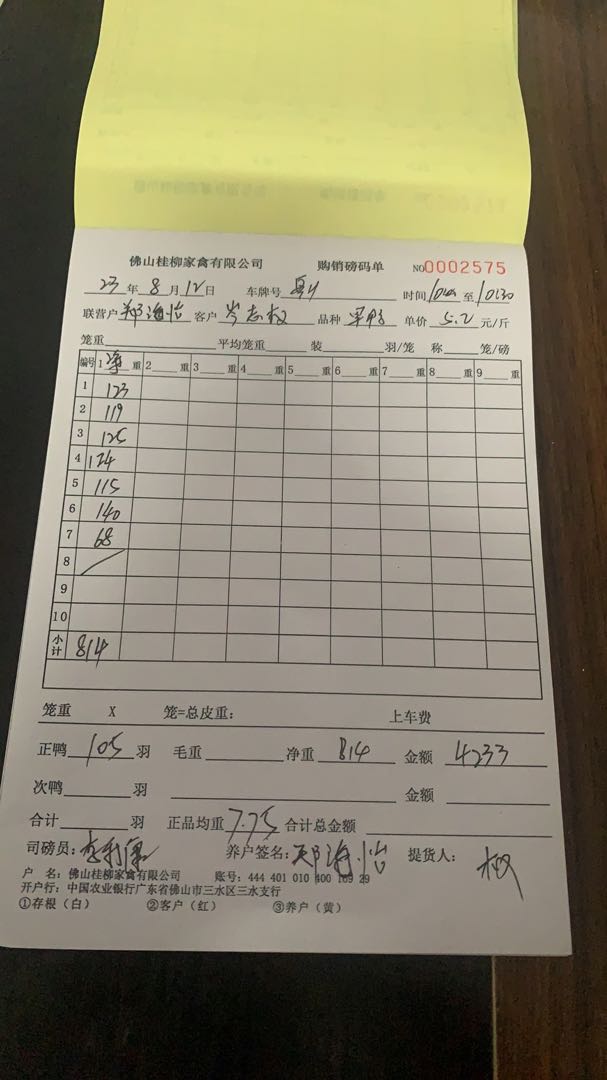 佛山桂柳家禽有限公司 购销磅码单 NO0002575
23年8月12日 车牌号 时间 至10:30
联营户 郑海怡 客户 岑志权 品种 单价 5.2 元/斤
笼重 平均笼重 装 羽/笼 称 笼/磅
编号 1 净 重 2 重 3 重 4 重 5 重 6 重 7 重 8 重 9 重
1 123
2 119
3 125
4 124
5 115
6 140
7 68
8
9
10
小计 814
笼重 X 笼=总皮重： 上车费
正鸭 105 羽 毛重 净重 814 金额 4233
次鸭 羽 金额
合计 羽 正品均重 7.75 合计总金额
司磅员： 养户签名：郑海怡 提货人：权
户 名：佛山桂柳家禽有限公司 账号：444 401 010 400 169 29
开户行：中国农业银行广东省佛山市三水区三水支行
①存根（白） ②客户（红） ③养户（黄）